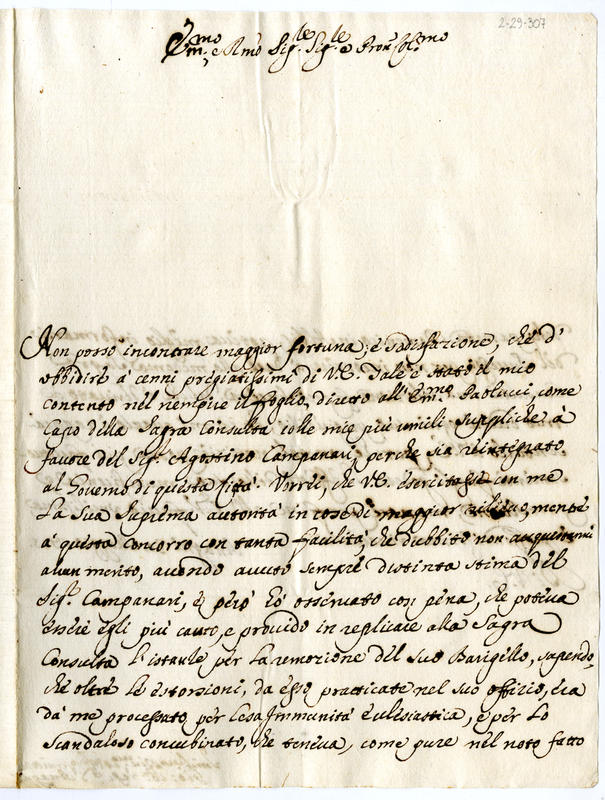 2-29-307
Em.mo e R.mo Sig.r Sig.r e Pron Col.mo
Non posso incontrare maggior fortuna, e sodisfazione, che d'
ubbidire à cenni pregiatissimi di V.E. Tale è stato il mio
contento nel riempire il foglio diretto all'Em.mo Paolucci, come
Capo della Sagra Consulta colle mie più umili suppliche à
favore del Sig.r Agostino Campanari, perche sia reintegrato
al Governo di questa Città. Vorrei, che V.E. esercitasse con me
la sua suprema autorità in cose di maggior rilievo, mentre
à questa concorro con tanta facilità, che dubbito non acquistarmi
alcun merito, avendo avuto sempre distinta stima del
Sig.r Campanari, e però hò osservato con pena, che poteva
essere egli più cauto, e provido in replicare alla Sagra
Consulta l'istanze per la remozione del suo Barigello, sapendo,
che oltre le estorsioni, da esso practicate nel suo offizio, era
dà me processato per lesa Immunità eclesiastica, e per lo
scandaloso concubinato, che teneva, come pure nel noto fatto